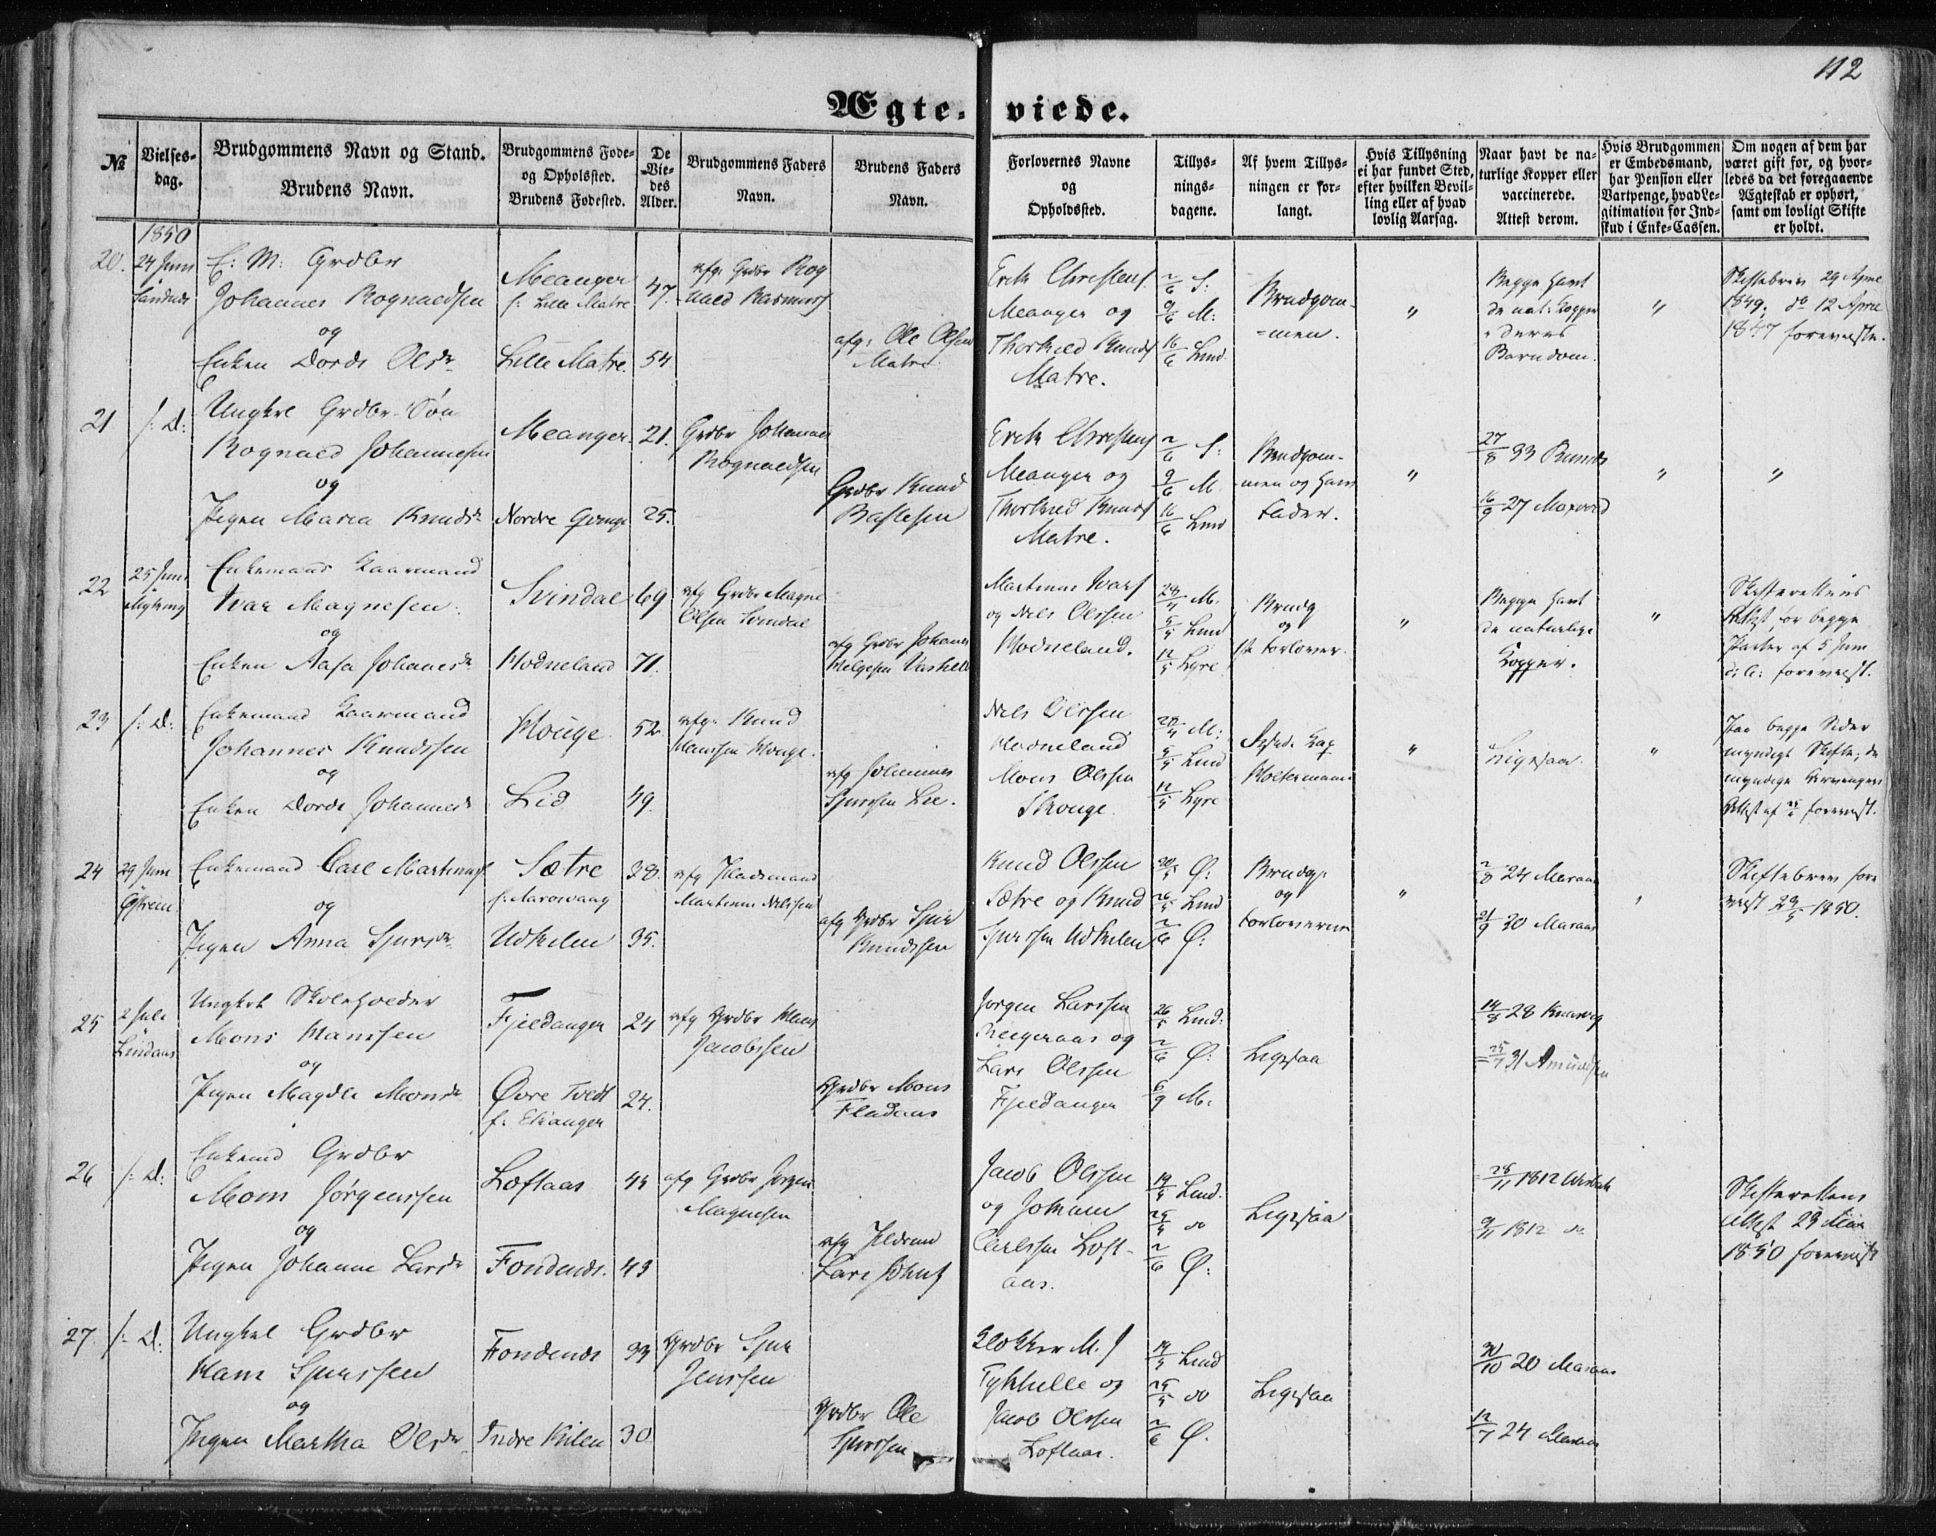 112
Ægte- viede.
№
Vielses-dag.
Brudgommens Navn og Stand.
Brudens Navn.
Brudgommens Føde- og Opholdssted.
Brudens Fødested.
De Viedes Alder.
Brudgommens Faders Navn.
Brudens Faders Navn.
Forlovernes Navne og Opholdssted.
Tillysningsdagene.
Af hvem Tillysningen er forlangt.
Hvis Tillysning ei har fundet Sted, efter hvilken Bevilling eller af hvad lovlig Aarsag.
Naar havt de naturlige Kopper eller vaccinerede. Attest derom.
Hvis Brudgommen er Embedsmand, har Pension eller Vartpenge, hvad Legitimation for Indskud i Enke-Cassen.
Om nogen af dem har været gift før, og hvorledes da det foregaaende Ægteskab er ophørt, samt om lovligt Skifte er holdt.
1850
20. 24 Juni
E: M: Grdbr
Johannes Rognaldsen
og
Enken Dorde Olsdr
Meanger
f: Lille Matre 47.
Lille Matre. 54
afg: Grdbr Rognald Rasmuss
afg: Ole Olsen
Matre
Erik Christens
Meanger og
Thorkild Knuds
Matre.
2/6 S:
9/6 M:
16/6 Lind
Brudgom-
-men.
"
Begge havt
de nat: Kopper
i deres
Barndom.
"
Skiftebrev 29 April
1849. do 12 April
1847 foreviste.
21 /: D:
Ungkrl Grdbr. Søn
Rognald Johannesen
og
Pigen Maria Knudsdr
Meanger. 21.
Nordre 25.
Grdbr Johannes
Rognaldsen
Grdbr Knud
Erik Christens
Meanger og
Thorkild Knuds
Matre.
2/6 S:
9/6 M.
16/6 Lind
Brudgom-
-men og hans
Fader.
"
27/8 33
16/9 27
"
"
22 25 Juni
Enkemand Kaarmand
Ivar Magnesen.
og
Enken Aasa Johannesdr
Svindal 69
Hodneland 71.
afg Grdbr Magne
Olsen Svindal
afg Grdbr Johannes
Helgesen
Martinus Ivars
og Nels Olssen
Hodneland.
M.
5/5 Lind
12/5 Lyre
Brudg
og
Forlover.
"
Begge havt
de naturlige
Kopper.
"
Skifterettens
Attest for begge
Parter af 5 Juni
d: A: forevist.
23 /: D:
Enkemand Kaarmand
Johannes Knudssen
og
Enken Dorde Johannesdr
Houge 52
Lid 49.
afg: Knud
Hanssen Houge.
afg Johannes
Sjurssen Lie.
Nels Olssen
Hodneland
Mons Olssen
M:
5/5 Lind
12/5 Lyre
"
Ligesaa.
"
Paa begge Sider
myndigt Skifte; de
myndige Arvingers
Attest af forevist.
24 29 Juni
Enkemand Carl Martinus
og
Pigen Anna Sjursdr
Sætre 38.
Udkilen 35.
afg
Martinus Nilssen
afg Grdbr Sjur
Knudssen
Knud Olssen
Sætre og Knud
Sjurssen Udkilen
20/5 Ø:
26/5 Lind
2/6 Ø:
Brudg:
og
Forloverne
"
2/8 24
21/9 30
"
Skiftebrev fore
vist 1850.
25 2 Juli
Lindaas
Ungkrl Skoleholder
Mons Hanssen
og
Pigen Magdle Monsdr
Fjeldanger 24
Øvre Tvedt
f: Eikanger 24.
afg Grdbr Hans
Jacobssen
Grdbr Mons
Jørgen Larssen
og
Lars Olssen
Fjeldanger
26/5 Lind:
2/6 Ø:
6/9 M:
Ligesaa
14/8 28
25/7 31 Amundsen
26 /: D:
Enkemd Grdbr
Mons Jørgenssen
og
Pigen Johanne Larsdr
Loftaas 45
Fondenes. 43
afg Grdbr Jørgen
Magnesen
afg
Lars Johns
Jacob Olssen
og Johan
Carlssen Loft-
aas.
19/5 Lind.
do
2/6 Ø:
Ligesaa
1812
9/11 1812 do
Skifterettens
Attest 29
1850 forevist
27. /: D:
Ungkrl Grdbr
Hans Sjurssen
og
Pigen Martha Olsdr
Fondenes 33
Indre Kilen 30
Grdbr Sjur
Jenssen
Grdbr Ole
Sjurssen
Klokker M. J
og
Jacob Olssen
Loftaas.
19/5 Lind
do
2/6 Ø.
Ligesaa
30/10 20
12/7 24